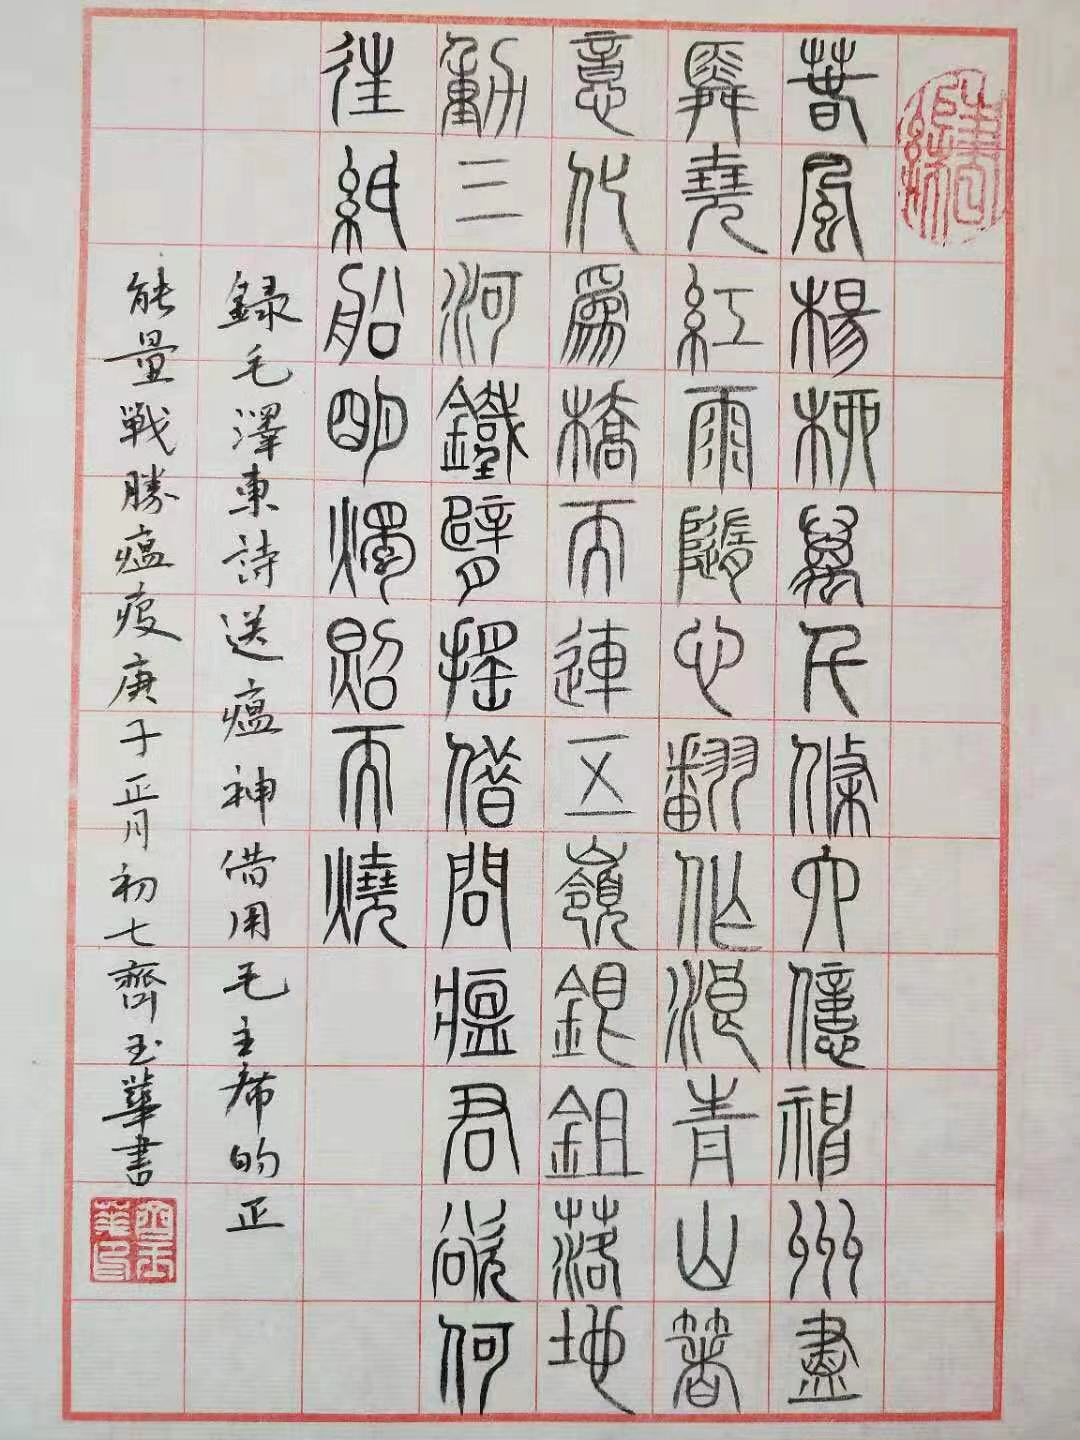 春風楊柳萬千條六億神州盡
舜堯紅雨隨心翻作浪青山著
意化爲橋天連五嶺銀鉏落地
動三河鐵臂搖借問瘟君欲何
往紙船明燭照天燒
録毛澤東詩送瘟神借用毛主席的正
能量戦勝瘟疫庚子正月初七齊玉華書
齊玉華印